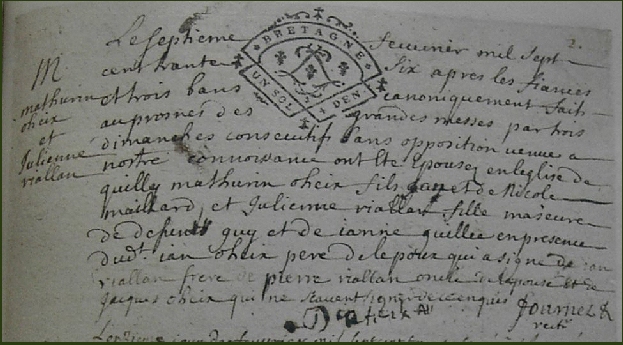 2.
Le septieme feuvrier mil sept
M cent trante six apres les fiances
mathurin et trois bans canoniquement faits
oheix au prosnes des grandes messes par trois
et dimanches consecutifs sans opposition venue a
Julienne notre connoisance ont ete epousez en leglise de
riallan quilly mathurin oheix fils jan et de Nicole
maillard, et Julienne riallan fille majeure
de defunts guy et de ianne quillee en presence
dudt. ian oheix pere de lepoux qui a signe de
riallan frere de pierre riallan oncle de lepouse et de
Jacques oheix qui ne scavent signer de ce enquis
BRETAGNE
UN SOL DEN